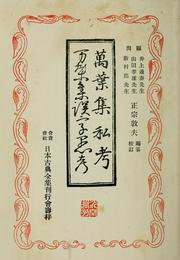 顧問
井上通泰先生
山田孝雄先生
新村出先生
正宗敦夫 編纂校訂
萬葉集私考
万葉集誤字愚考
會社 日本古典全集刊行會壽梓